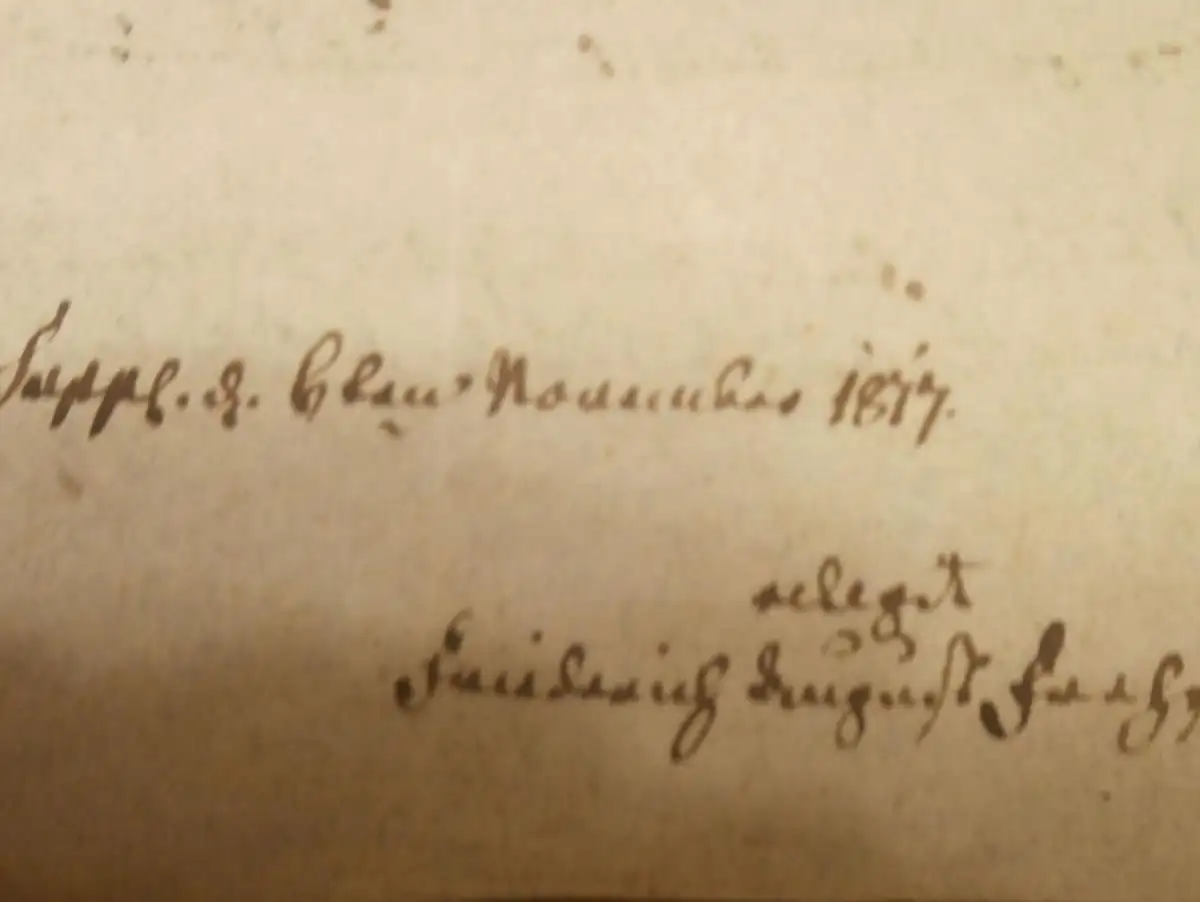 Suppl. d. 6ten November 1817.
relegit
Friederich August